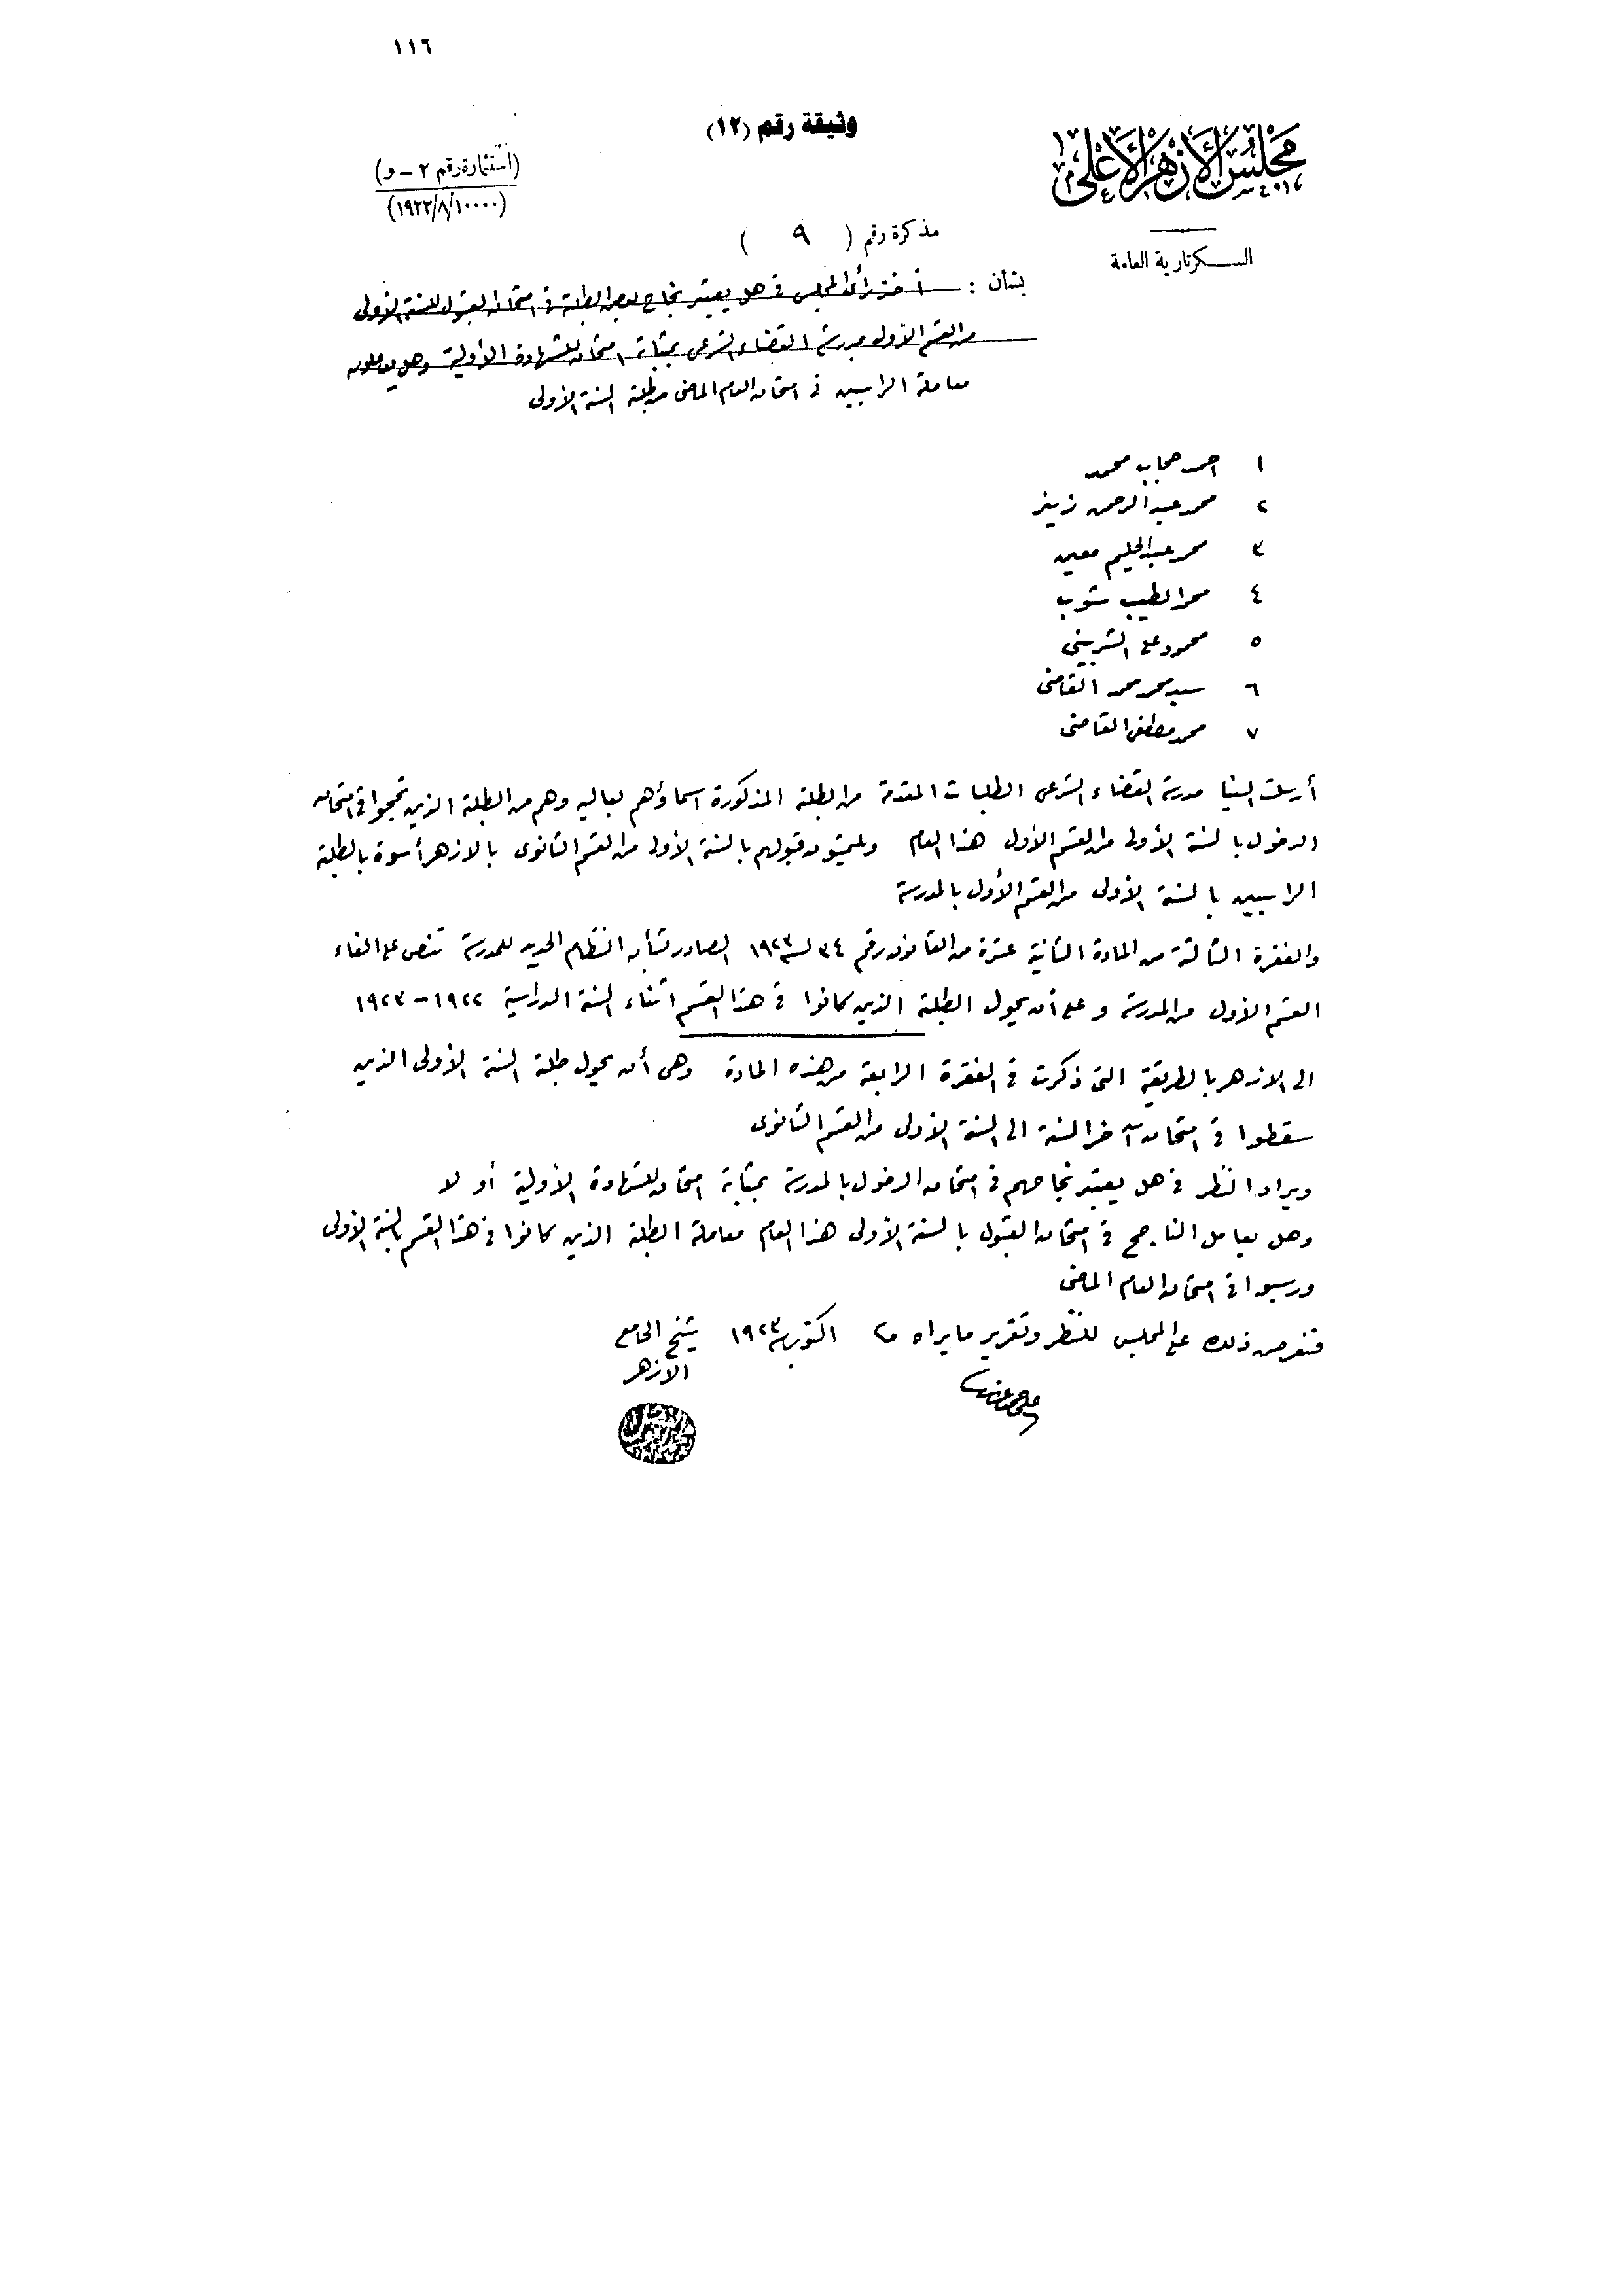 ١١٦
وثيقة رقم (١٢)
مجلس الأزهر الأعلى
السكرتارية العامة
(استمارة رقم ٢ - و)
(١٩٢٢/٨/١٠٠٠٠)
مذكرة رقم ( ٩ )
بشأن : أخذ رأى المجلس فى هل يعتبر نجاح بعض الطلبة فى امتحان القبول للسنة الأولى
من القسم الأول بمدرسة القضاء الشرعى بمثابة امتحان للشهادة الأولية وهل يعاملون
معاملة الراسبين فى امتحان العام الماضى من طلبة السنة الأولى
١ احمد حجاب محمد
٢ محمد عبد الرحمن
٣ محمد عبد الحليم معين
٤ محمد الطيب شوب
٥ محمود على الشربينى
٦ سيد محمد محمد القاضى
٧ محمد مصطفى القاضى
أرسلت الينا مدرسة القضاء الشرعى الطلبات المقدمة من الطلبة المذكورة اسماؤهم بعاليه وهم من الطلبة الذين نجحوا فى امتحان
الدخول بالسنة الأولى من القسم الأول هذا العام ويلتمسون قبولهم بالسنة الأولى من القسم الثانوى بالازهر أسوة بالطلبة
الراسبين بالسنة الأولى من القسم الأول بالمدرسة
والفقرة الثالثة من المادة الثانية عشرة من القانون رقم ٣٤ لسنة ١٩٢٣ الصادر بشأن النظام الجديد للمدرسة تنص على الغاء
القسم الأول من المدرسة وعلى أن يحول الطلبة الذين كانوا فى هذا القسم اثناء السنة الدراسية ١٩٢٢ - ١٩٢٣
الى الازهر بالطريقة التى ذكرت فى الفقرة الرابعة من هذه المادة وهى أن يحول طلبة السنة الأولى الذين
سقطوا فى امتحان آخر السنة الى السنة الأولى من القسم الثانوى
ويراد النظر فى هل يعتبر نجاحهم فى امتحان الدخول بالمدرسة بمثابة امتحان للشهادة الأولية أو لا
وهل يعامل الناجح فى امتحان القبول بالسنة الأولى هذا العام معاملة الطلبة الذين كانوا فى هذا القسم بالسنة الأولى
ورسبوا فى امتحان العام الماضى
فنعرض ذلك على المجلس للنظر وتقرير ما يراه اكتوبر سنة ١٩٢٣ شيخ الجامع
الازهر